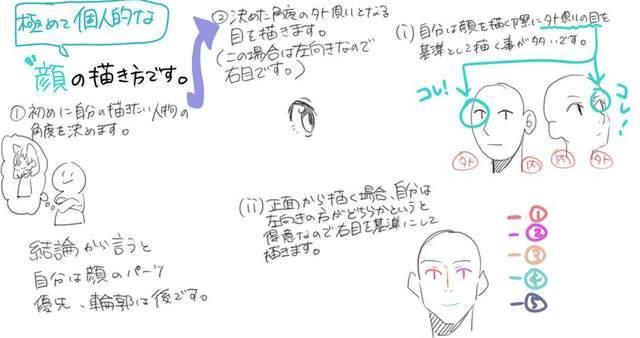 極めて個人的な
"顔の描き方です。
①初めに自分の描きたい人物の
角度を決めます。
結論から言うと
自分は顔のパーツ
優先、輪郭は後です。
②決めた角度の外側となる
目を描きます。
(この場合は左向きなので
右目です。)
(i)自分は顔を描く際に外側の目を
基準として描く事が多いです。
コレ!
コレ!
外
内
内
外
(ii)正面から描く場合、自分は
左向きの方がどちらかというと
得意なので右目を基準にして
描きます。
①
②
③
④
⑤